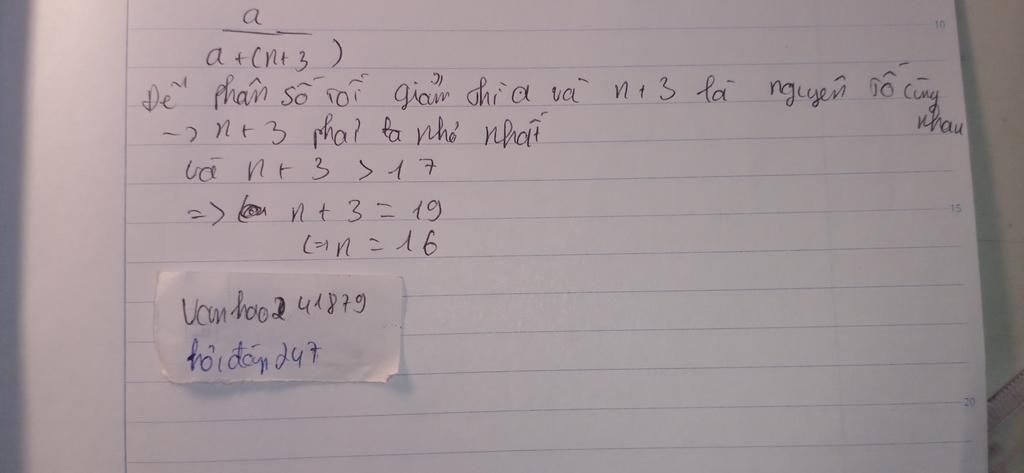 a
a + (n+3)
Để phân số tối giản thì a và n + 3 là nguyên tố cùng
nhau
-> n + 3 phải là nhỏ nhất
và n + 3 > 17
=> n + 3 = 19
<=> n = 16
vanhao241879
hỏi đáp 247
10
15
20